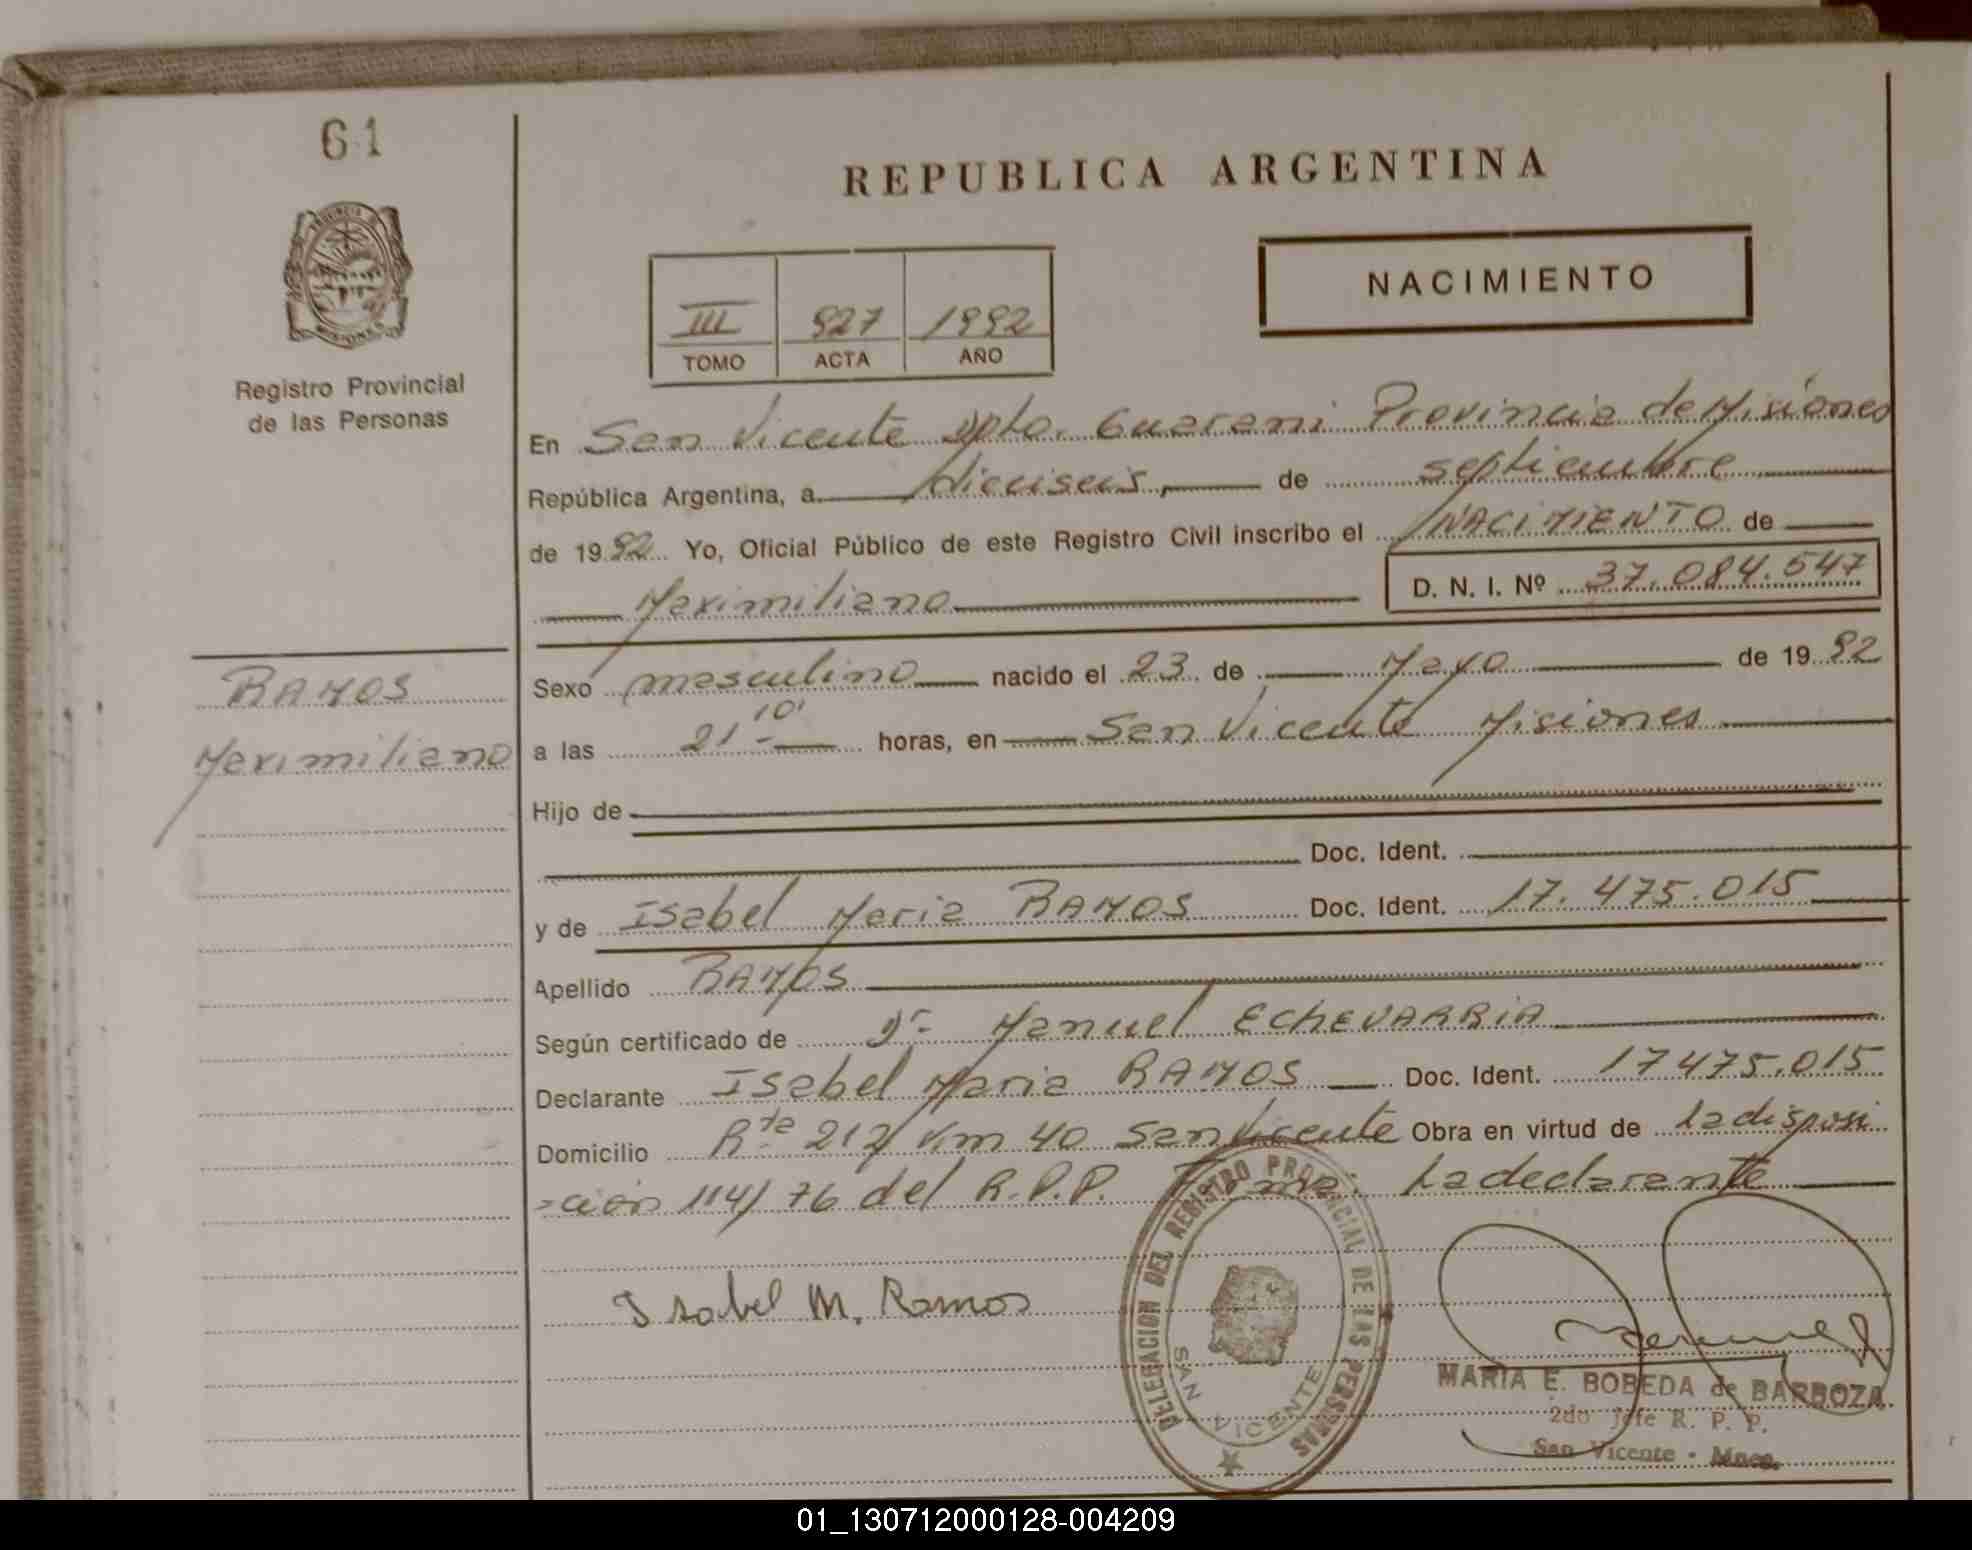 61
REPUBLICA ARGENTINA
PROVINCIA DE
MISIONES
Registro Provincial
de las Personas
III 927 1992
TOMO ACTA AÑO
NACIMIENTO
En San Vicente Dpto. Guarani Provincia de Misiones
República Argentina, a dieciseis, de septiembre
de 1992 Yo, Oficial Público de este Registro Civil inscribo el NACIMIENTO de
Maximiliano D. N. I. Nº 37.084.547
RAMOS
Maximiliano
Sexo masculino nacido el 23 de Mayo de 1992
a las 21 10' horas, en San Vicente Misiones
Hijo de
Doc. Ident.
y de Isabel Maria RAMOS Doc. Ident. 17.475.015
Apellido RAMOS
Según certificado de Dr Manuel ECHEVARRIA
Declarante Isabel Maria RAMOS Doc. Ident. 17475.015
Domicilio Rta 212 Km 40 San Vicente Obra en virtud de La disposi
ción 114/76 del R.P.P. Firma: La declarante
Isabel M. Ramos
DELEGACION DEL REGISTRO PROVINCIAL DE LAS PERSONAS
SAN VICENTE
MARIA E. BOBEDA de BARBOZA
2do Jefe R. P. P.
San Vicente - Mnes.
01_130712000128-004209